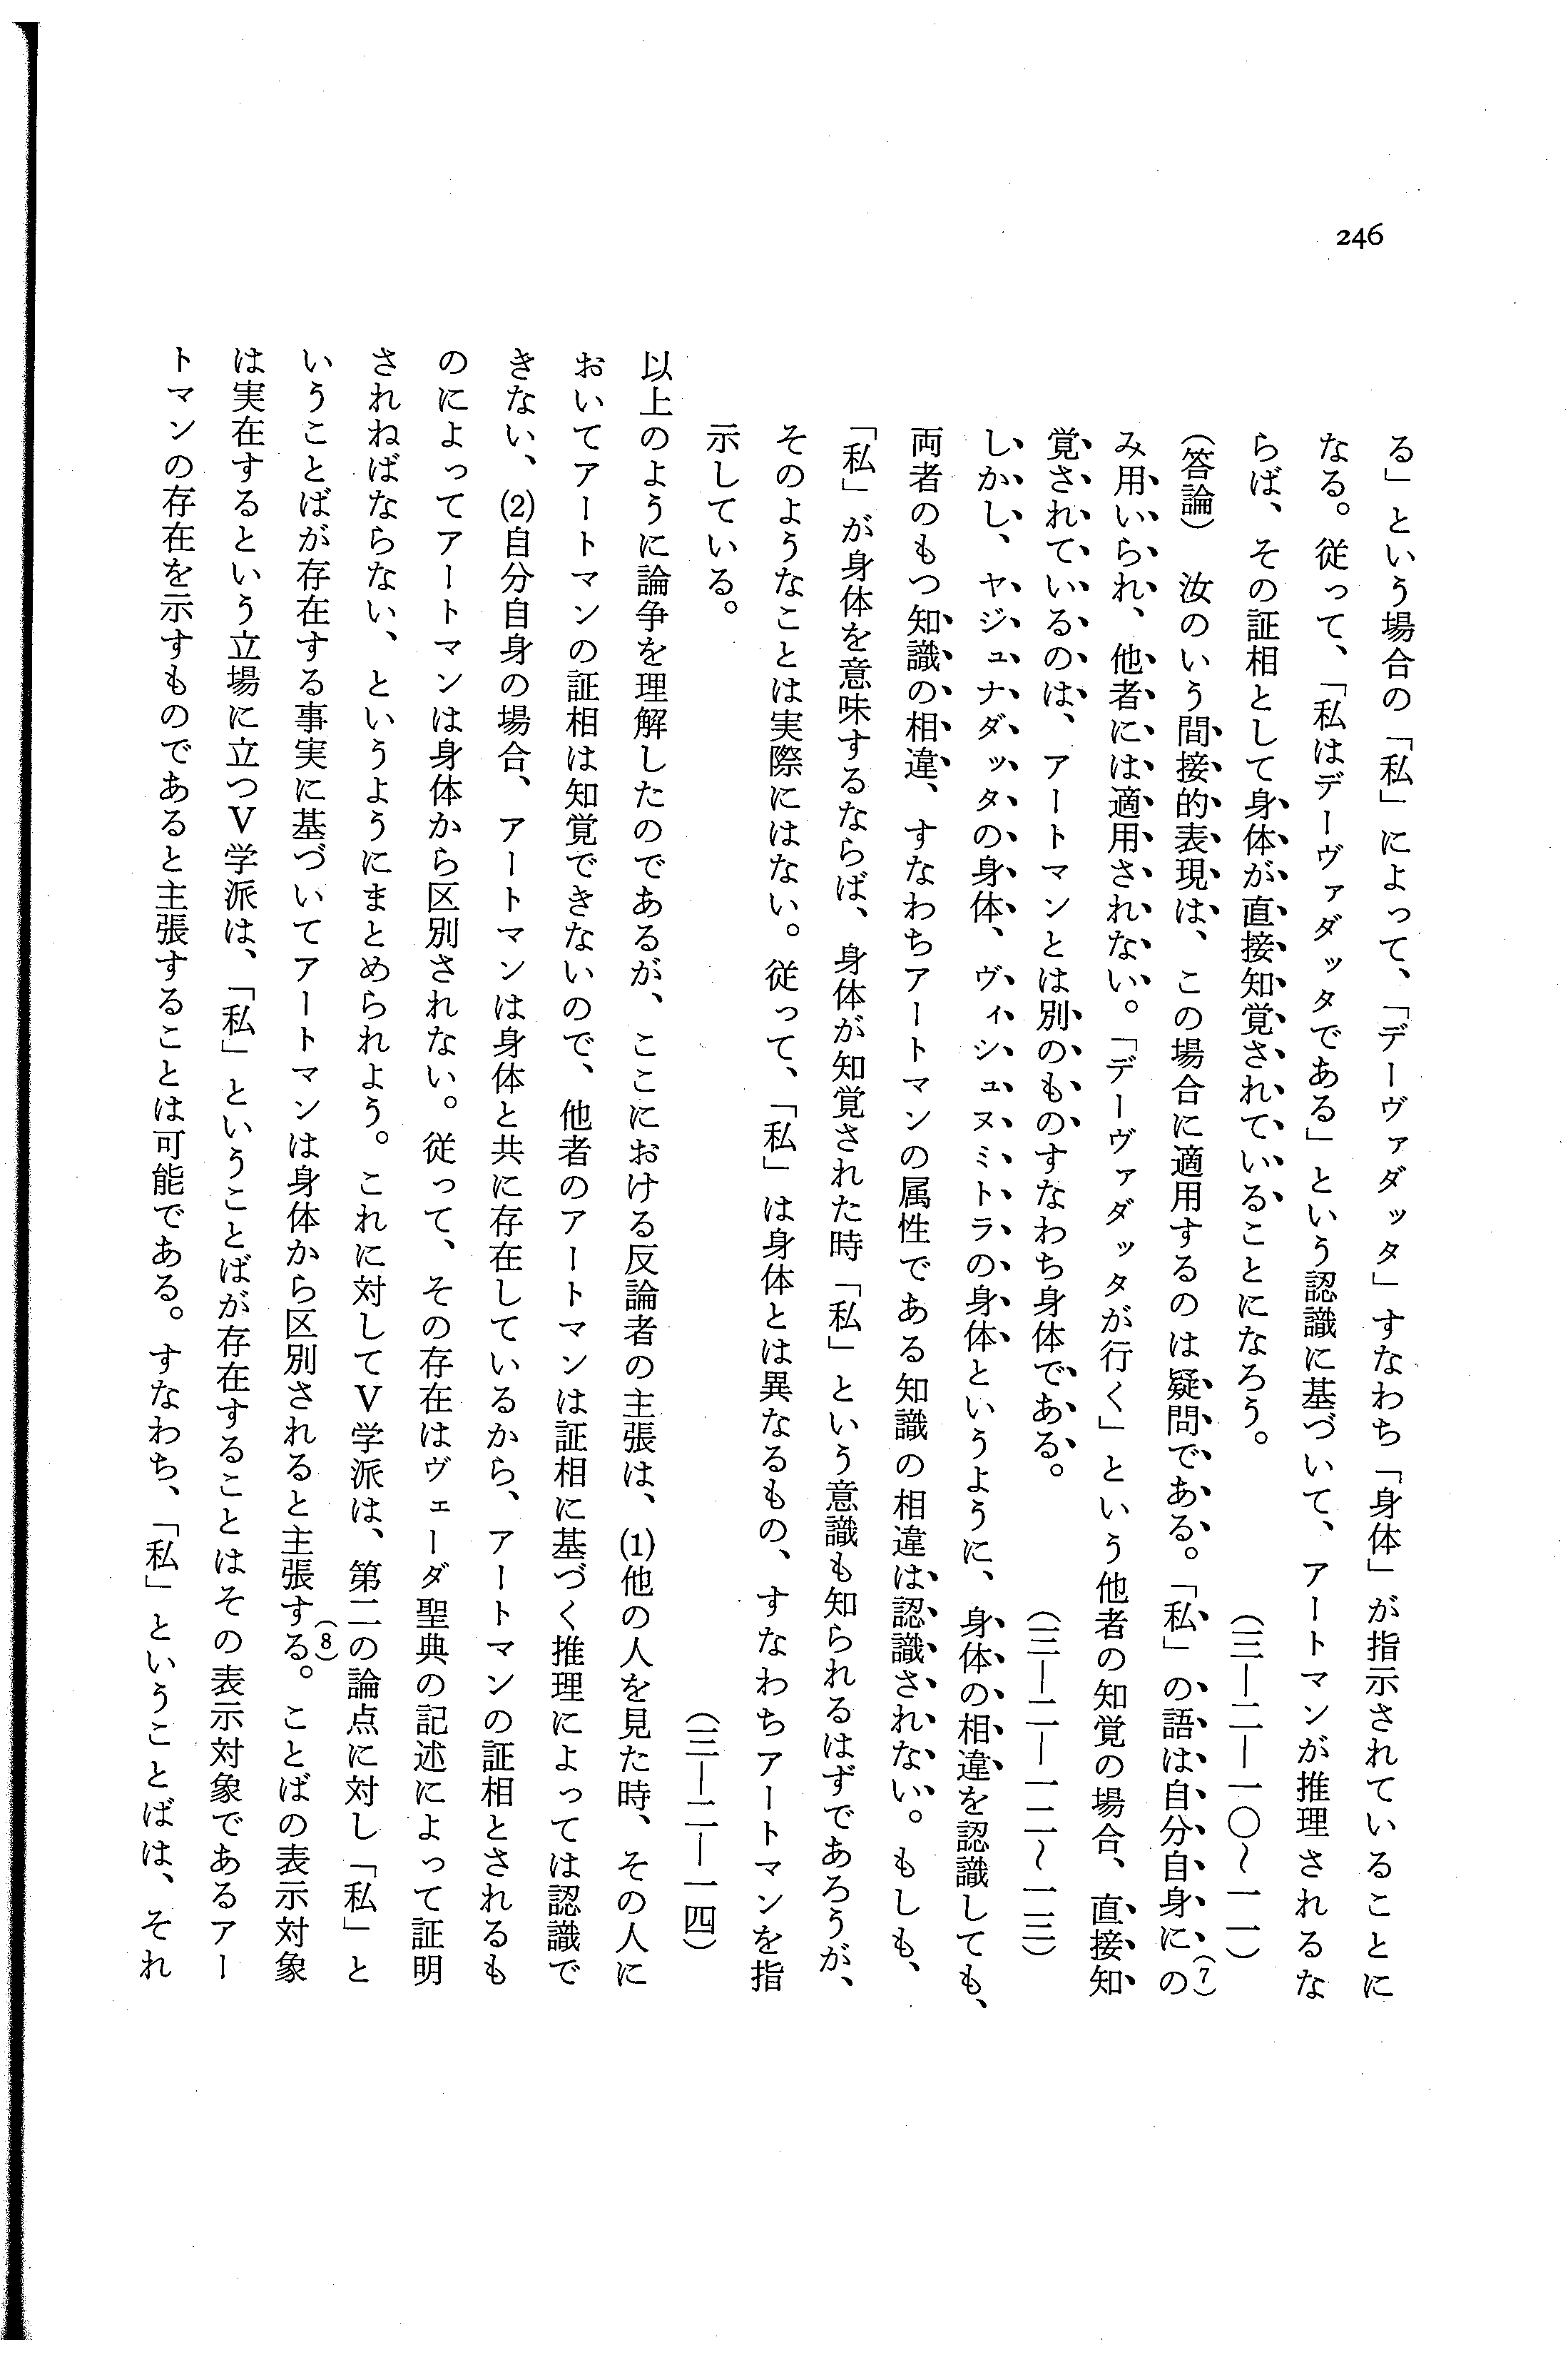 246
る」という場合の「私」によって、「デーヴァダッタ」すなわち「身体」が指示されていることに
なる。従って、「私はデーヴァダッタである」という認識に基づいて、アートマンが推理されるな
らば、その証相として身体が直接知覚されていることになろう。（三―二―一〇～一一）
（答論）　汝のいう間接的表現は、この場合に適用するのは疑問である。「私」の語は自分自身にの(7)
み用いられ、他者には適用されない。「デーヴァダッタが行く」という他者の知覚の場合、直接知
覚されているのは、アートマンとは別のものすなわち身体である。（三―二―一二～一三）
しかし、ヤジュナダッタの身体、ヴィシュヌミトラの身体というように、身体の相違を認識しても、
両者のもつ知識の相違、すなわちアートマンの属性である知識の相違は認識されない。もしも、
「私」が身体を意味するならば、身体が知覚された時「私」という意識も知られるはずであろうが、
そのようなことは実際にはない。従って、「私」は身体とは異なるもの、すなわちアートマンを指
示している。（三―二―一四）
以上のように論争を理解したのであるが、ここにおける反論者の主張は、(1)他の人を見た時、その人に
おいてアートマンの証相は知覚できないので、他者のアートマンは証相に基づく推理によっては認識で
きない、(2)自分自身の場合、アートマンは身体と共に存在しているから、アートマンの証相とされるも
のによってアートマンは身体から区別されない。従って、その存在はヴェーダ聖典の記述によって証明
されねばならない、というようにまとめられよう。これに対してV学派は、第二の論点に対し「私」と
いうことばが存在する事実に基づいてアートマンは身体から区別されると主張する(8)。ことばの表示対象
は実在するという立場に立つV学派は、「私」ということばが存在することはその表示対象であるアー
トマンの存在を示すものであると主張することは可能である。すなわち、「私」ということばは、それ